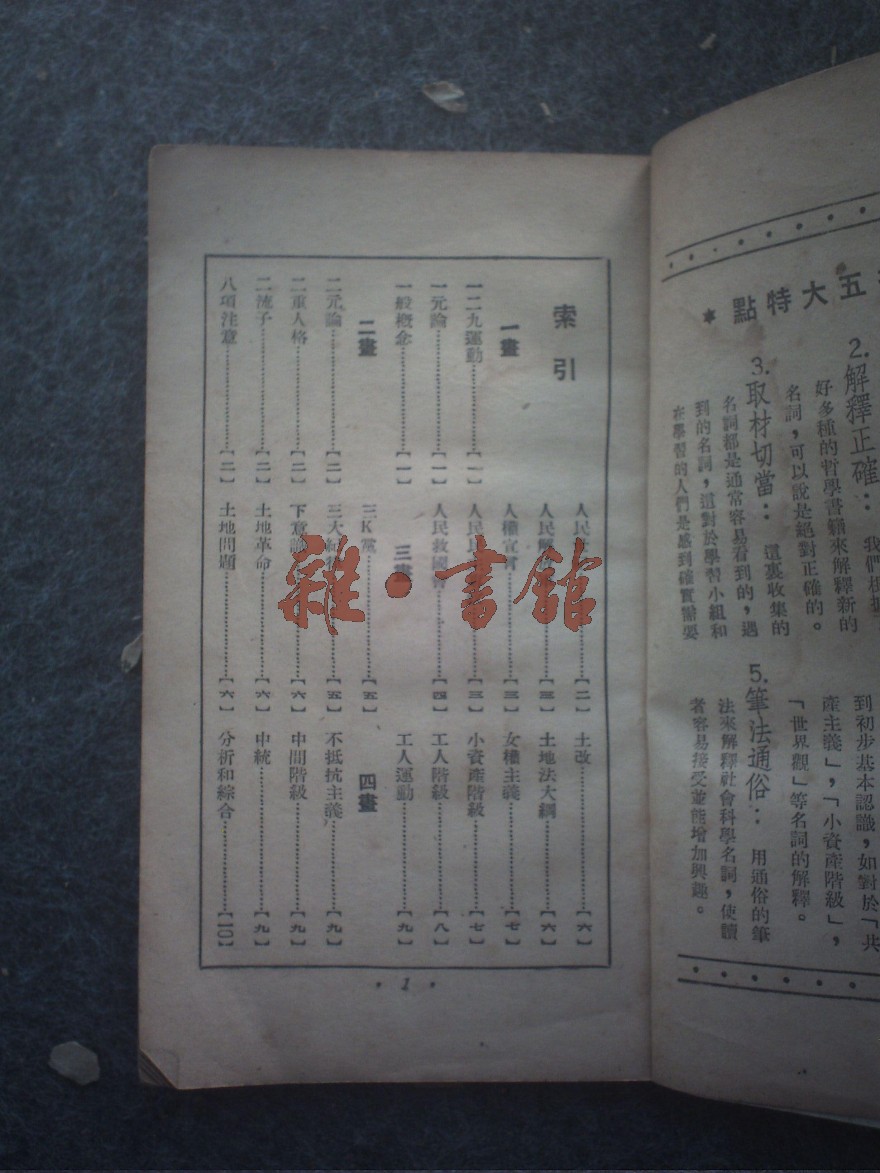 五大特點 *
2.解釋正確：我們根據
好多種的哲學書籍來解釋新的
名詞，可以說是絕對正確的。
3.取材切當：這裏收集的
名詞都是通常容易看到的，遇
到的名詞，這對於學習小組和
在學習的人們是感到確實需要
到初步基本認識，如對於「共
產主義」，「小資產階級」，
「世界觀」等名詞的解釋。
5.筆法通俗：用通俗的筆
法來解釋社會科學名詞，使讀
者容易接受並能增加興趣。
索引
一畫
一二九運動…………【一】
一元論…………【一】
一般概念…………【一】
二畫
二元論…………【二】
二重人格…………【二】
二流子…………【二】
八項注意…………【二】
人民…………【二】
人民解…………【三】
人權宣言…………【三】
人民民…………【三】
人民救國會…………【四】
三畫
三K黨…………【五】
三大紀律…………【五】
下意識…………【六】
土地革命…………【六】
土地問題…………【六】
土改…………【六】
土地法大綱…………【六】
女權主義…………【七】
小資產階級…………【七】
工人階級…………【八】
工人運動…………【九】
四畫
不抵抗主義…………【九】
中間階級…………【九】
中統…………【九】
分析和綜合…………【一〇】
·1·
雜·書館